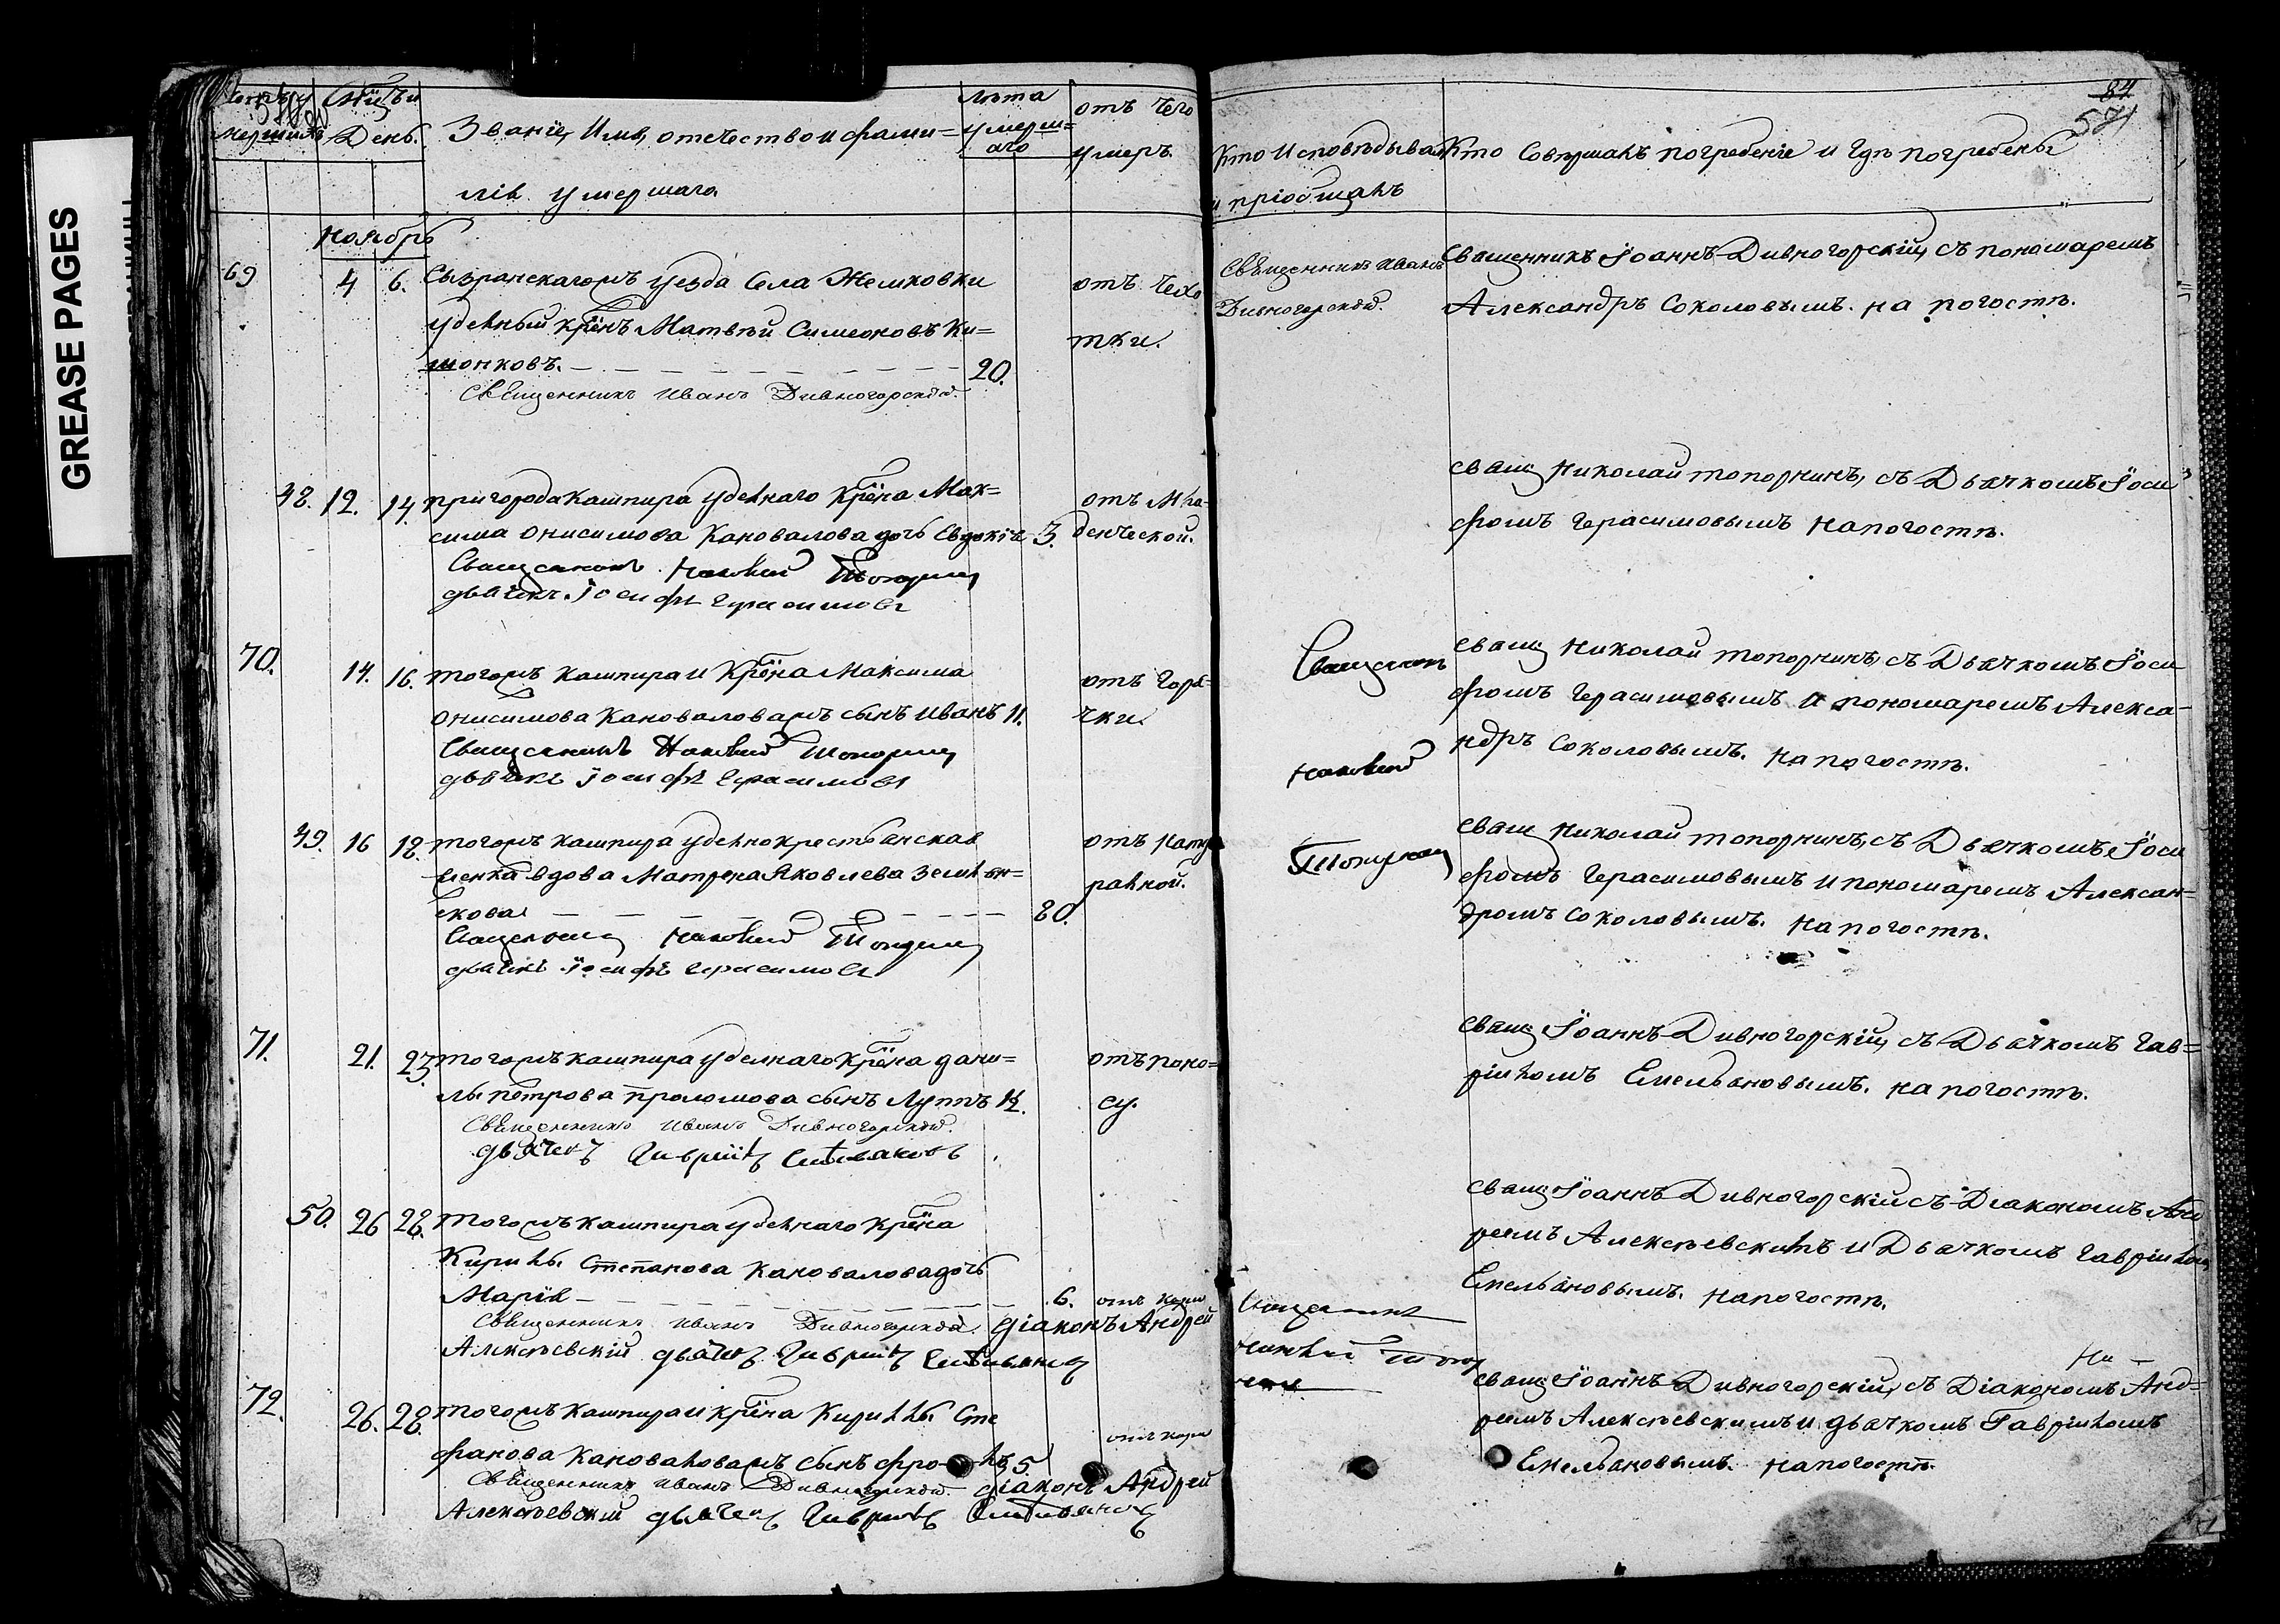 GREASE PAGES
Мѣсяцъ и
День.
Званіе, Имя, отечество и фами=
лія умершаго.
Лѣта
умерш=
аго
отъ чего
умеръ.
Кто Исповѣдывалъ
и пріобщалъ
Кто Совершалъ погребеніе и Гдѣ погребены
84
571
Ноябрь
69 4 6. Сызранскагожъ уезда Села Жемковки
удельный крѣнъ Матвѣй Симеоновъ Ки=
шонковъ. 20.
отъ Чехо
тки.
Священникъ Иванъ Дивногорскій.
Священникъ Иванъ
Дивногорскій.
Священникъ Іоаннъ Дивногорскій, съ пономаремъ
Александръ Соколовымъ. на погостѣ.
48. 12. 14. пригорода Кашпира удельнаго крѣна Мак=
сима Онисимова Кановалова дочь Евдокія 3.
отъ Мла=
денческой.
Священникъ Николай Топорнин
дьячекъ Іосифъ Герасимовъ
свящ Николай топорнинъ, съ Дьячкомъ Іоси
фомъ Герасимовымъ на погостѣ.
70. 14. 16. тогожъ кашпира и крѣна Максима
Онисимова Кановаловажъ сынъ Иванъ 11.
отъ Горя=
чки.
Священникъ Николай Топорнин
дьячекъ Іосифъ Герасимовъ
Священникъ
Николай
Топорнин
свящ Николай топорнинъ, съ Дьячкомъ Іоси
фомъ Герасимовымъ и пономаремъ Алекса=
ндръ Соколовымъ. на погостѣ.
49. 16 18. тогожъ кашпира удельнокрестьянская
женка вдова Матрена Яковлева Землян=
скова 80.
отъ Нату
ральной.
Священникъ Николай Топорнин
дьячекъ Іосифъ Герасимовъ
свящ Николай топорнинъ, съ Дьячкомъ Іоси
фомъ Герасимовымъ и пономаремъ Алексан=
дромъ Соколовымъ. на погостѣ.
71. 21. 23. тогожъ кашпира удельнаго крѣна Дани=
лы петрова проломова сынъ Луппъ 12.
отъ поно=
су.
Священникъ Иванъ Дивногорскій.
дьячекъ Гавріилъ Емельяновъ
свящ Іоаннъ Дивногорскій, съ Дьячкомъ Гав=
ріиломъ Емельяновымъ. на погостѣ.
50. 26 28. тогожъ кашпира удельнаго крѣна
Кирилы Степанова Кановалова дочь
Марія 6. отъ кори
Священникъ Иванъ Дивногорскій. діаконъ Андрей
Алексѣевскій дьячекъ Гавріилъ Емельяновъ
Священникъ
Николай Топор
нин
свящ Іоаннъ Дивногорскій съ Діакономъ Анд
реемъ Алексѣевскимъ и Дьячкомъ Гавріиломъ
Емельяновымъ. на погостѣ.
72. 26. 28. тогожъ кашпира и крѣна Кирилы Сте
фанова Кановаловажъ сынъ Фролъ 5
отъ кори
Священникъ Иванъ Дивногорскій діаконъ Андрей
Алексѣевскій дьячекъ Гавріилъ Емельяновъ
свящ Іоаннъ Дивногорскій, съ Діакономъ Анд=
реемъ Алексѣевскимъ и дьячкомъ Гавріиломъ
Емельяновымъ. на погостѣ.